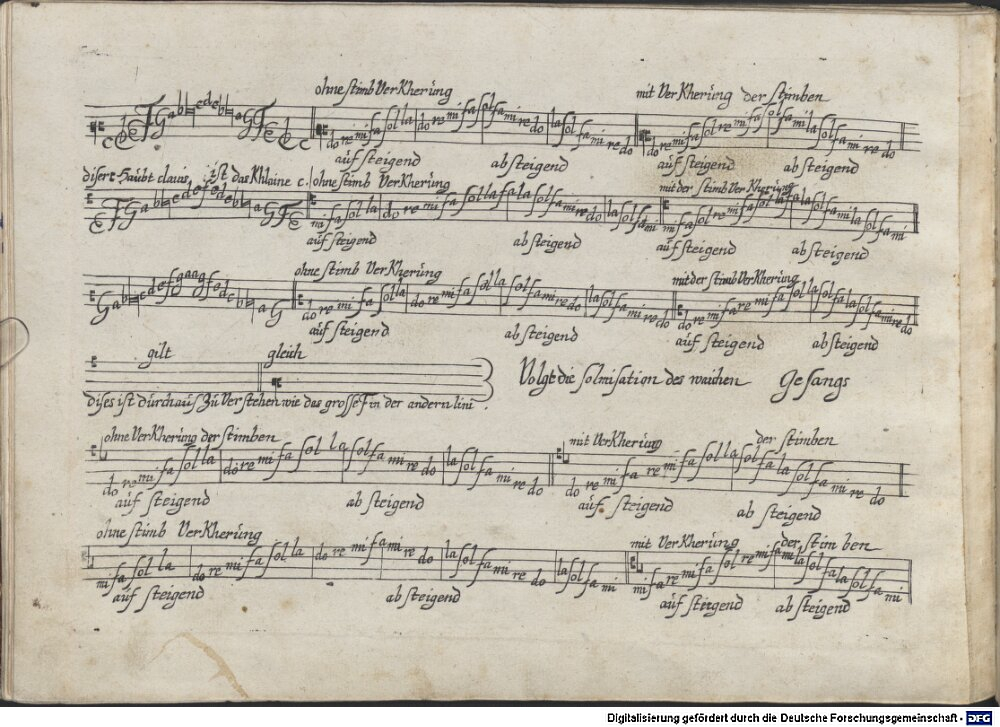 ohne stimb Verkherüng mit Verkherüng der stimben
do re mi fa sol la do re mi fa sol fa mi re do la sol fa mi re do do re mi fa sol re mi fa sol fa mi la sol fa mi re do
auf steigend ab steigend auf steigend ab steigend
diser Haubt clavis, ist das Khlaine c. ohne stimb Verkherüng mit der stimb Verkherüng
F G a b c d e f e d e b a G F
mi fa sol la do re mi fa sol la fa la sol fa mi re do la sol fa mi mi fa sol re mi fa sol la fa la sol fa mi la sol fa mi
auf steigend ab steigend auf steigend ab steigend
ohne stimb Verkherüng mit der stimb Verkherüng
G a b c d e f g a a g f e d c b a G
do re mi fa sol la do re mi fa sol la la sol fa mi re do la sol fa mi re do do re mi fa re mi fa sol la sol la sol fa mi re do
auf steigend ab steigend auf steigend ab steigend
gilt gleich
Volgt die solmisation des waichen Gesangs
dises ist dürchaus zü Verstehen wie das grosse F in der andern lini.
ohne Verkherüng der stimben mit Verkherüng der stimben
do re mi fa sol la do re mi fa sol la sol fa mi re do la sol fa mi re do do re mi fa re mi fa sol la sol fa la sol fa mi re do
auf steigend ab steigend auf steigend ab steigend
ohne stimb Verkherüng mit Verkherüng der stimben
mi fa sol la do re mi fa sol la do re mi fa mi re do la sol fa mi re do la sol fa mi mi fa re mi fa sol re mi fa mi la sol fa la sol fa mi
auf steigend ab steigend auf steigend ab steigend
Digitalisierung gefördert durch die Deutsche Forschungsgemeinschaft - DFG